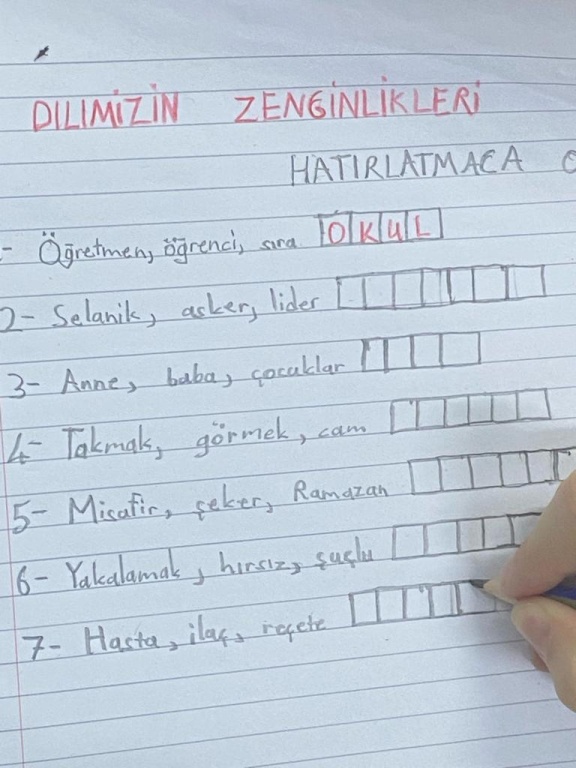 DILIMİZİN ZENGİNLİKLERİ
HATIRLATMACA
- Öğretmen, öğrenci, sıra OKUL
2- Selanik, asker, lider
3- Anne, baba, çocuklar
4- Takmak, görmek, cam
5- Misafir, şeker, Ramazan
6- Yakalamak, hırsız, suçlu
7- Hasta, ilaç, reçete